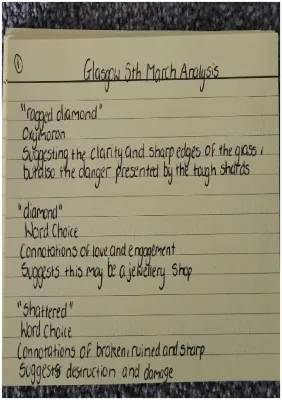 1
Glasgow 5th March Analysis
"ragged diamond"
Oxymoron
Suggesting the clarity and sharp edges of the glass,
but also the danger presented by the tough shards
"diamond"
Word Choice
Connotations of love and engagement
Suggests this may be a jewellery shop
"Shattered"
Word Choice
Connotations of broken, ruined and sharp
Suggests destruction and damage